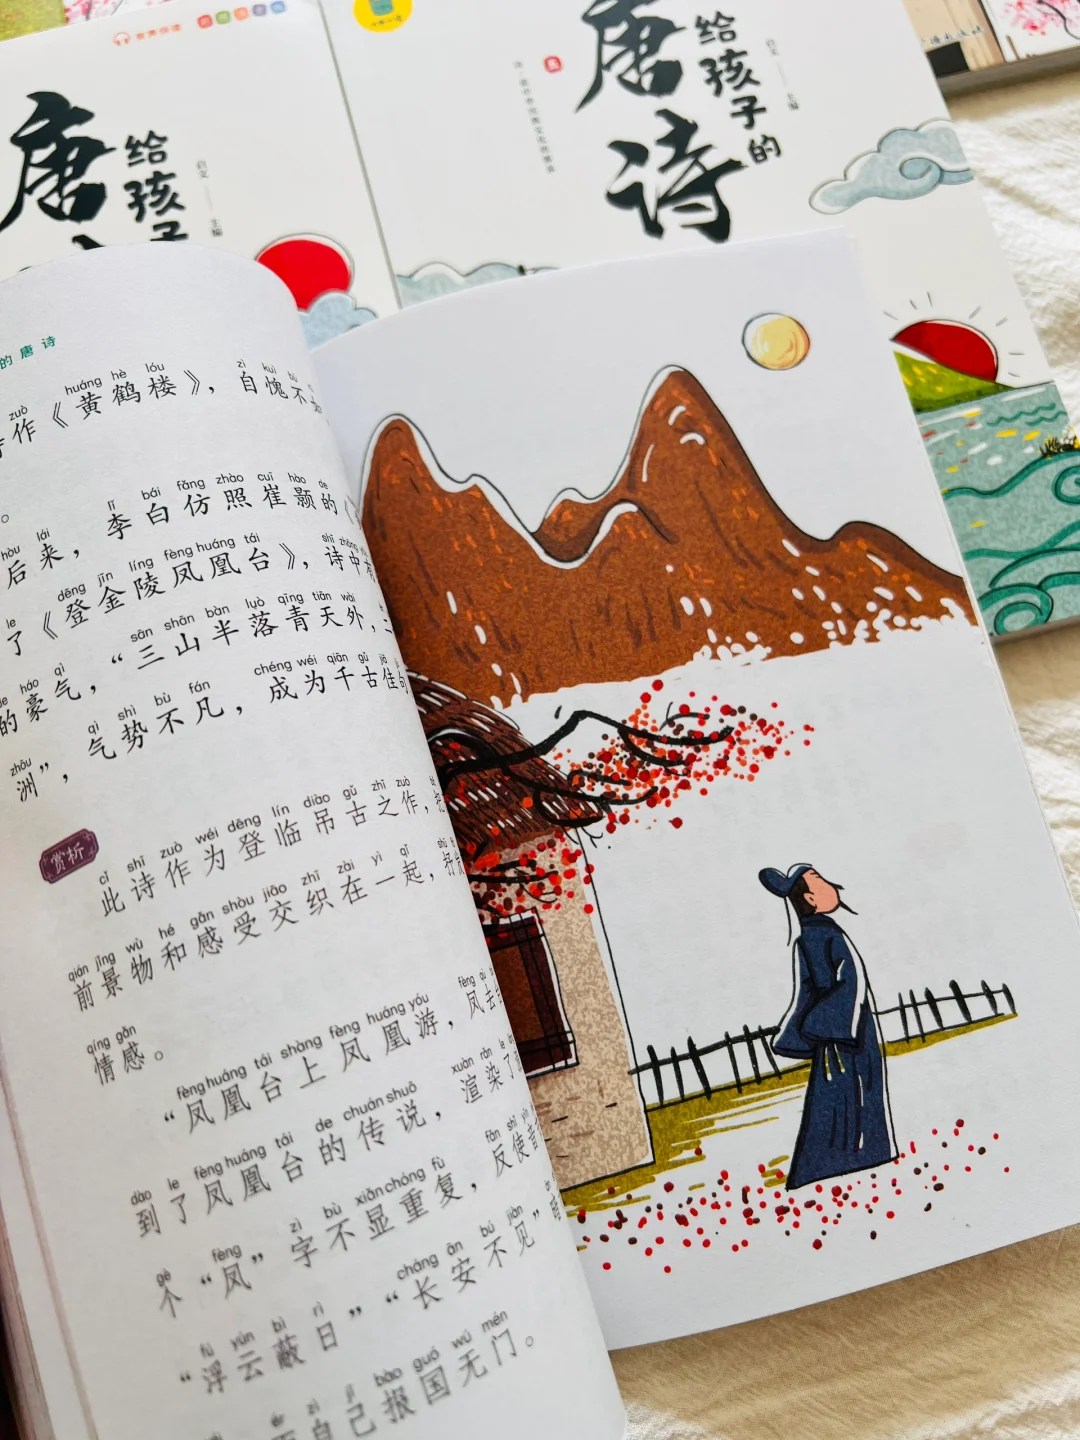 有声伴读
唐
给孩子
启文 主编
唐诗
给孩子的
启文 主编
的唐诗
zuò huáng hè lóu zì kuì bù
作《黄鹤楼》，自愧不
。
hòu lái lǐ bái fǎng zhào cuī hào de
后来，李白仿照崔颢的《
le dēng jīn líng fèng huáng tái shī zhōng
了《登金陵凤凰台》，诗中
de háo qì sān shān bàn luò qīng tiān wài
的豪气，“三山半落青天外，二
zhōu qì shì bù fán chéng wéi qiān gǔ jiā
洲”，气势不凡，成为千古佳句
赏析
cǐ shī zuò wéi dēng lín diào gǔ zhī zuò
此诗作为登临吊古之作，把
qián jǐng wù hé gǎn shòu jiāo zhī zài yì qǐ
前景物和感受交织在一起，抒
qíng gǎn
情感。
fèng huáng tái shàng fèng huáng yóu fèng qù
“凤凰台上凤凰游，凤去
dào le fèng huáng tái de chuán shuō xuàn rǎn le
到了凤凰台的传说，渲染了
gè fèng zì bù xiǎn chóng fù fǎn shǐ
个“凤”字不显重复，反使
fú yún bì rì cháng ān bú jiàn
“浮云蔽日”“长安不见”
ér zì jǐ bào guó wú mén
而自己报国无门。